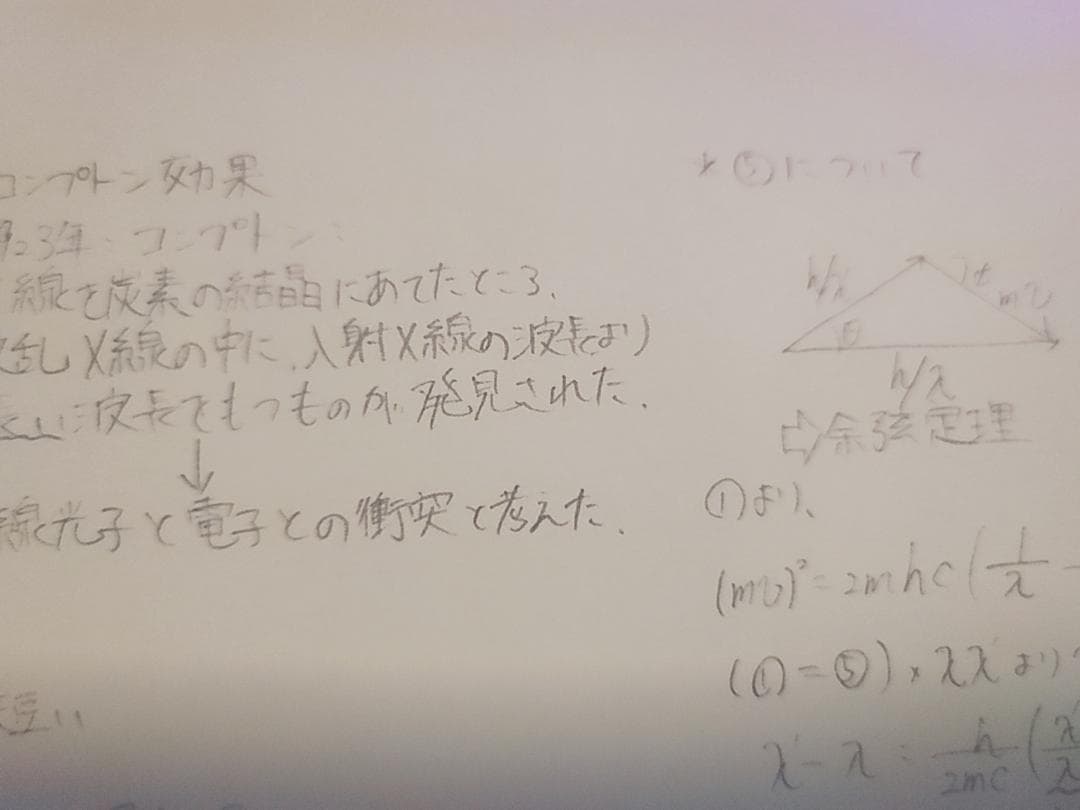 コンプトン効果
23年:コンプトン:
線を炭素の結晶にあてたところ、
乱X線の中に、入射X線の波長より
波長をもつものが、発見された。
↓
線光子と電子との衝突と考えた。
*⑤について
h/λ'
θ
mv
h/λ
⇨余弦定理
①より、
(mv)² = 2mhc(1/λ -
(①=⑤)×λλ'より
λ'-λ = h/2mc (λ'/λ